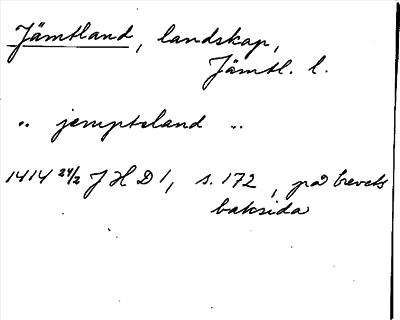 Jämtland, landskap,
Jämtl. l.
.. jempteland ..
1414 24/2 J H D 1, s. 172, på brevets
baksida